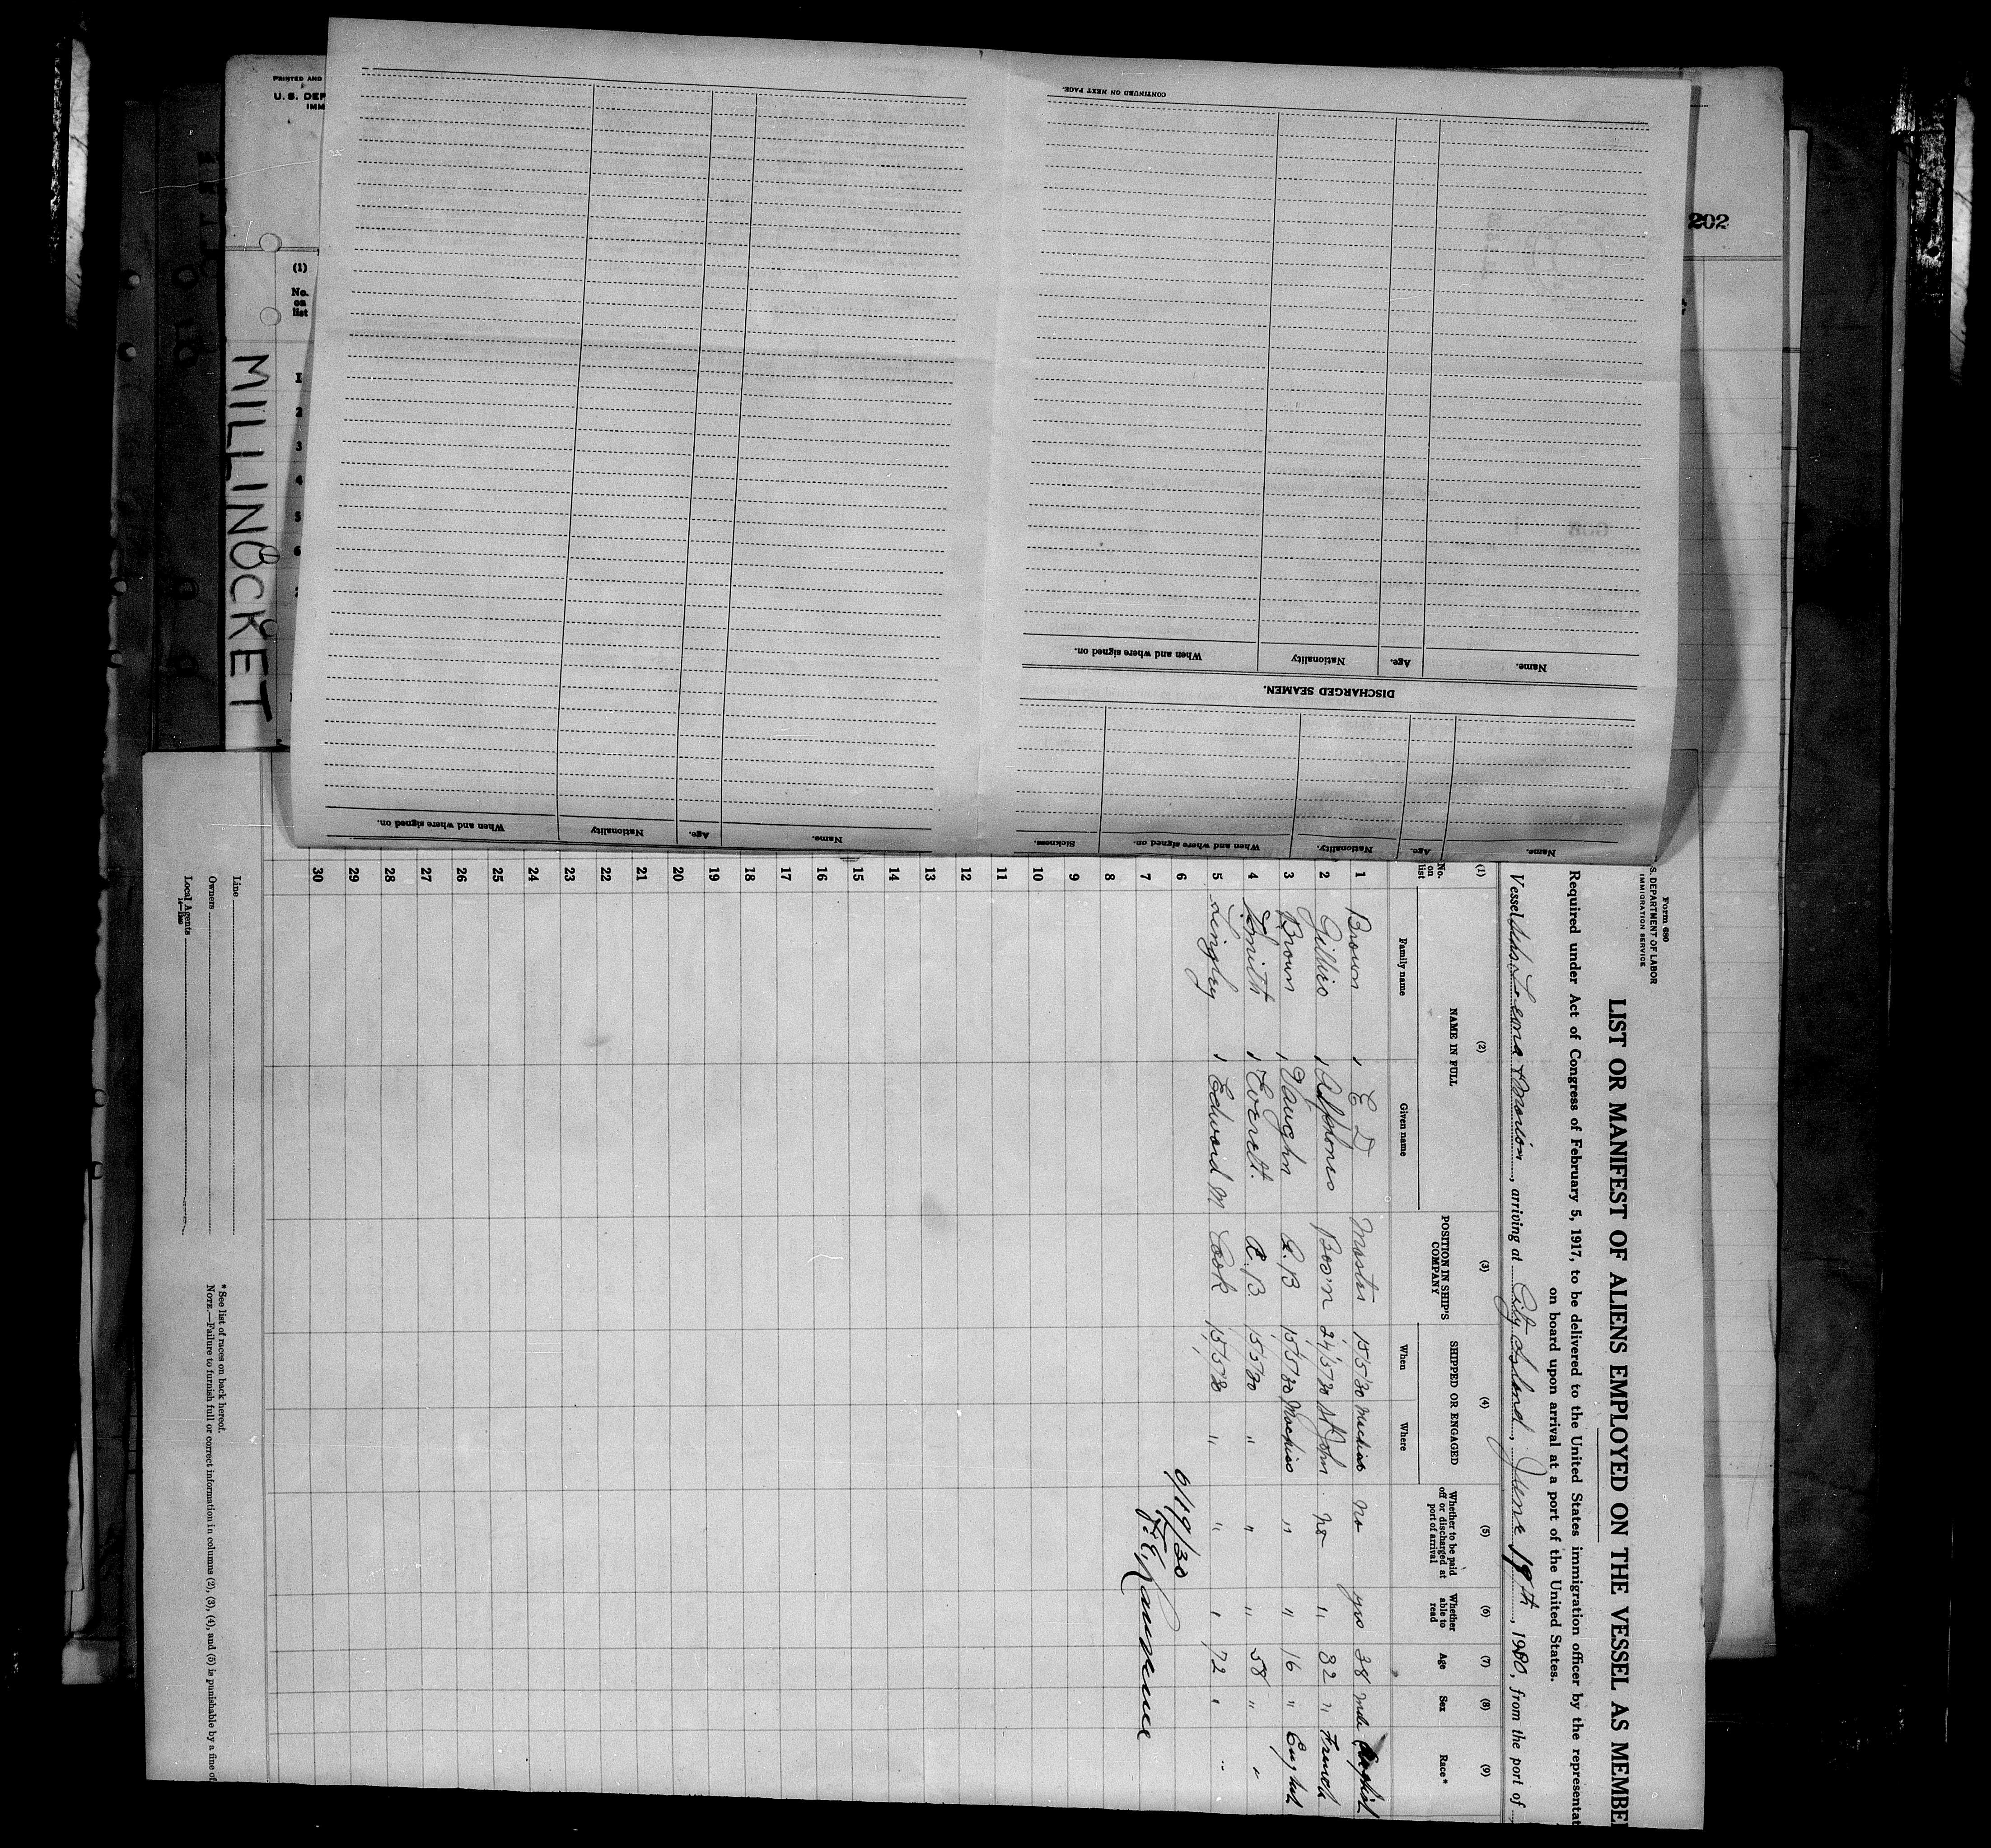 PRINTED AND
U. S. DEP
IMM
(1)
No.
on
list
1
2
3
4
5
6
MILLINOCKET
202
CONTINUED ON NEXT PAGE.
When and where signed on.
Nationality
Age.
Name.
DISCHARGED SEAMEN.
Name.
Age.
Nationality.
When and where signed on.
Sickness.
Name.
Age.
Nationality
When and where signed on.
Form 680
S. DEPARTMENT OF LABOR
IMMIGRATION SERVICE
LIST OR MANIFEST OF ALIENS EMPLOYED ON THE VESSEL AS MEMBE
Required under Act of Congress of February 5, 1917, to be delivered to the United States immigration officer by the representat
on board upon arrival at a port of the United States.
Vessel Leona & Marion, arriving at City Island, June 19th, 1930, from the port of
(1) (2) (3) (4) (5) (6) (7) (8) (9)
No. on list NAME IN FULL POSITION IN SHIP'S COMPANY SHIPPED OR ENGAGED Whether to be paid off or discharged at port of arrival Whether able to read Age Sex Race *
Family name Given name When Where
1 Brown E Master 15/5/30 no yes 38 male English
2 Bos'n 24/5/30 St John no " 32 " French
3 Brown Vaughn A.B 15/5/30 Machias " " 16 " English
4 Smith Everett. A.B. 15/5/30 " " " 58 " "
5 Edward M Cook 15/5/30 " " " 72 " "
6
7
8
9
10
11
12
13
14
15
16
17
18
19
20
21
22
23
24
25
26
27
28
29
30
6/19/30
Line
Owners
Local Agents
* See list of races on back hereof.
NOTE.—Failure to furnish full or correct information in columns (2), (3), (4), and (5) is punishable by a fine of